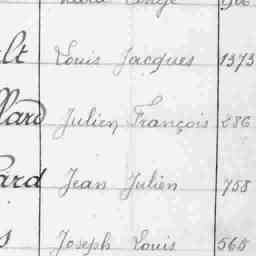 lt Louis Jacques 1373
llard Julien François 286
ard Jean Julien 758
s Joseph Louis 568